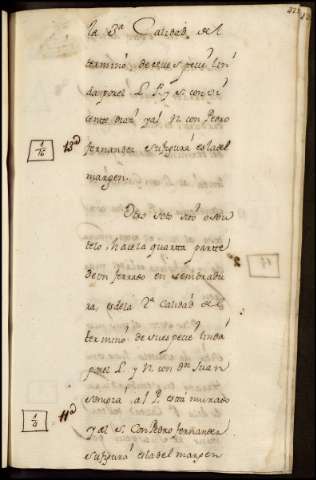 la 3ª Calidad del
termino de su especie lin
da por el L. P. y S. con Vi
cente y al N. con Pedro
fernandez su figura es la del
margen.
1/16 13d
Otro soto sito
hace la quarta parte
de un ferrado en sembradu
ra, es de la 2ª Calidad del
termino de su especie linda
por el L. y N. con Dn Juan
al P. esta murado
y al S. Con Pedro fernandez
su figura es la del margen
1/8 11d